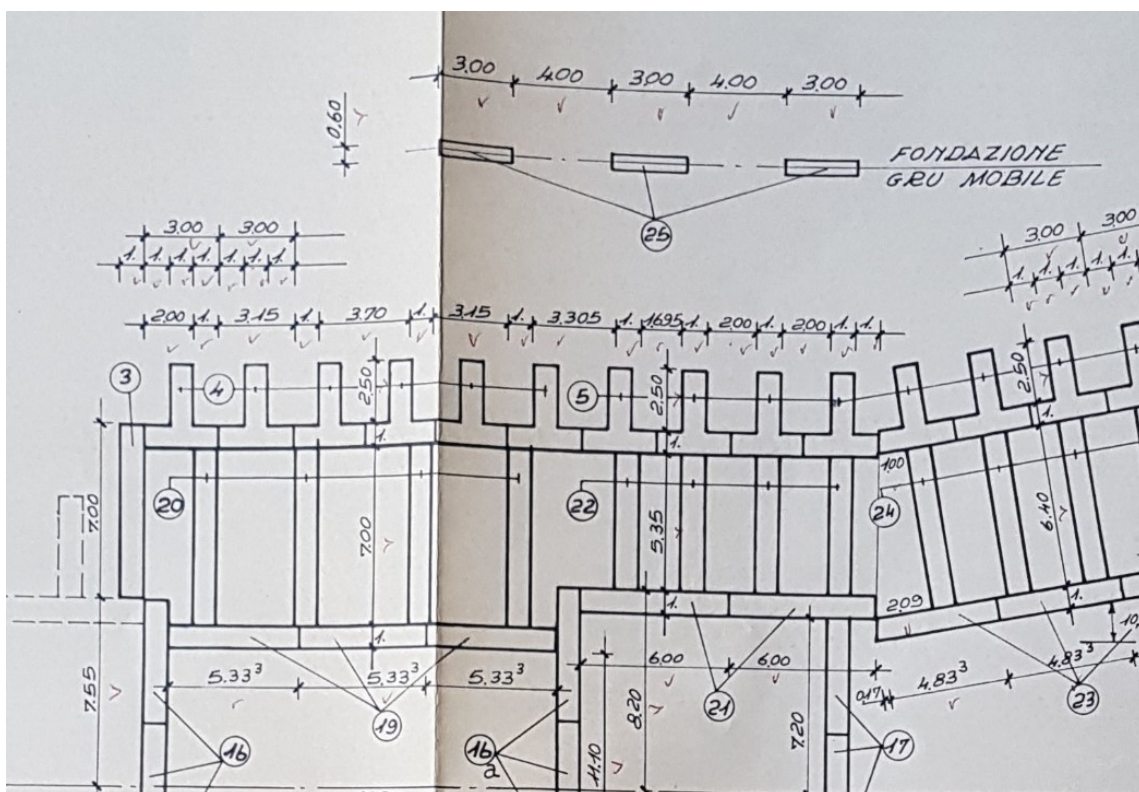 3.00 4.00 3.00 4.00 3.00
0.60
FONDAZIONE
GRU MOBILE
25
3.00 3.00
1. 1. 1. 1. 1. 1. 1.
3.00 3.00
1. 1. 1. 1. 1.
2.00 1. 3.15 1. 3.70 1. 3.15 1. 3.305 1. 1.695 1. 2.00 1. 2.00 1. 1.
3 4 2.50 5 2.50 2.50
1. 1. 1.
7.00 20 7.00 22 5.35 1.00 24 6.40
2.09
1. 1. 1.
10.
5.33³ 5.33³ 5.33³ 6.00 6.00 0.17 4.83³ 4.83³
7.55 19 8.20 21 23
16 16 a 11.10 7.20 17